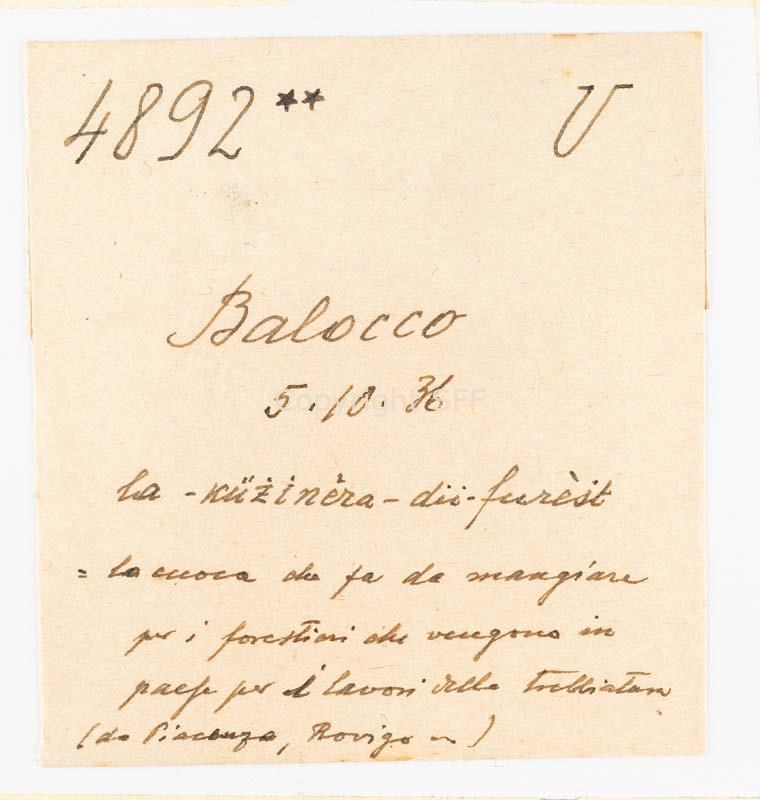 4892** V
Balocco
5.10.36
la - küżinèra - dii - furèśt
= la cuoca che fa da mangiare
per i forestieri che vengono in
paese per i lavori della trebbiatura
(da Piacenza, Rovigo )